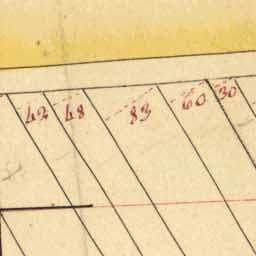 42 48 83 60 30